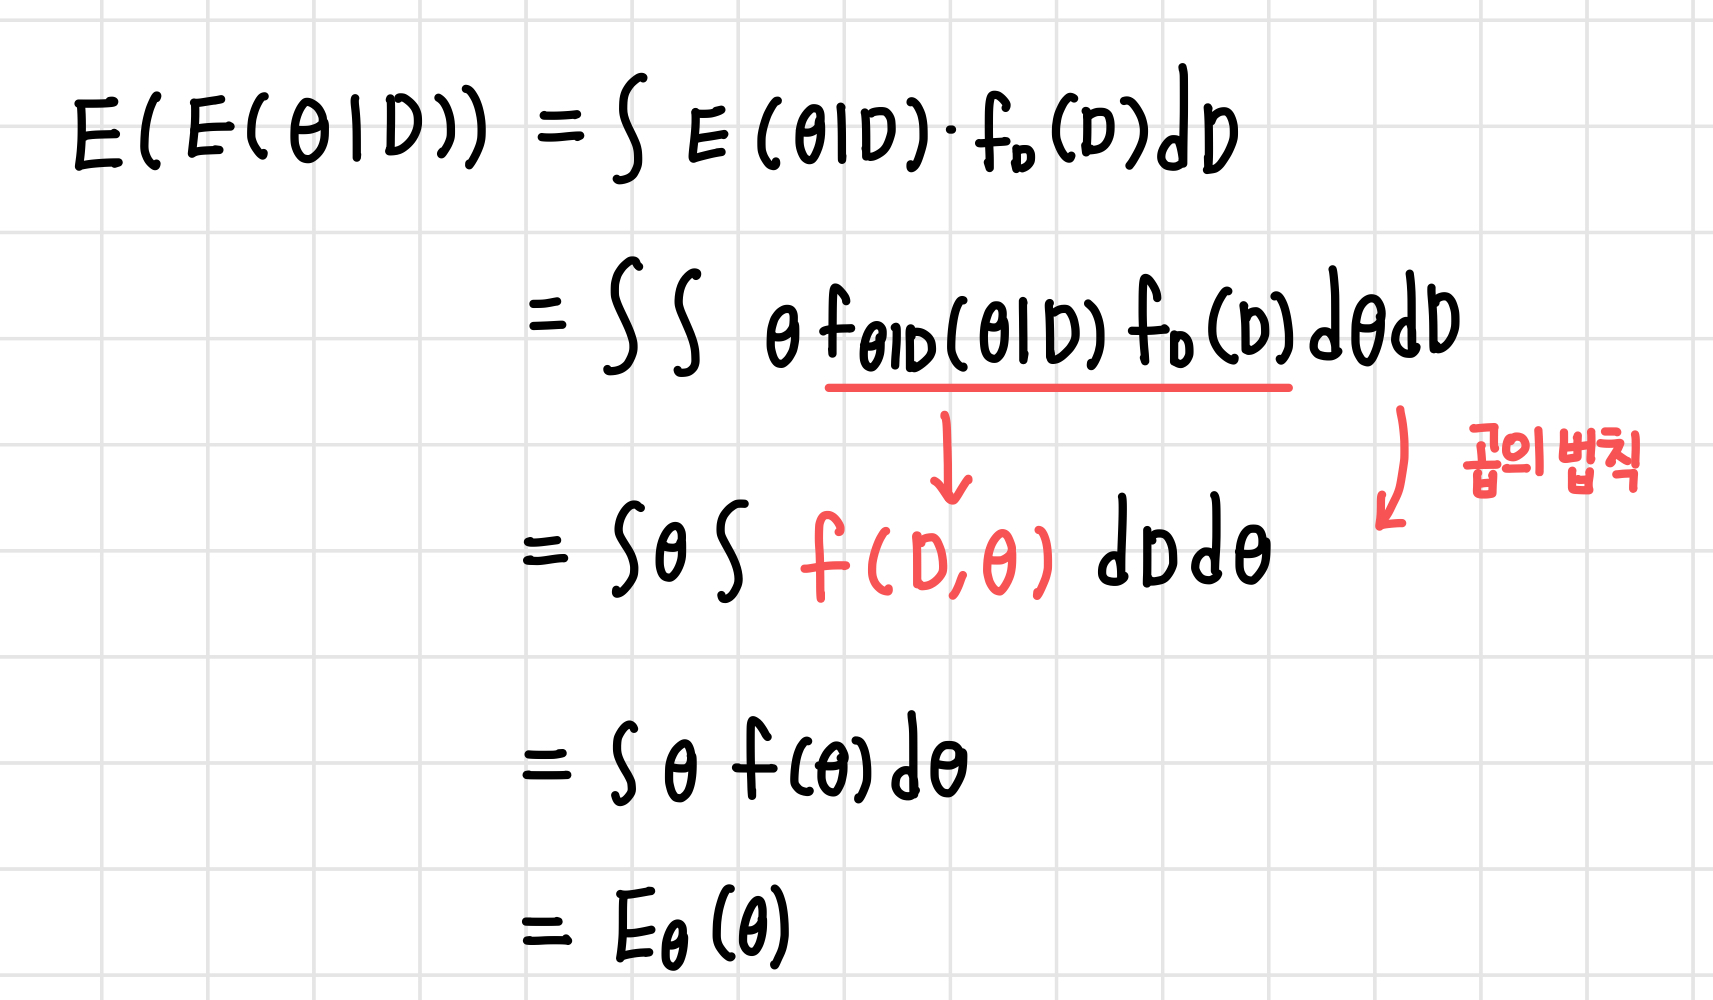 E(E(θ|D)) = ∫ E(θ|D)·f_D(D)dD
= ∫∫ θ f_θ|D(θ|D) f_D(D) dθdD
곱의 법칙
= ∫θ∫ f(D,θ) dDdθ
= ∫θ f(θ)dθ
= E_θ(θ)